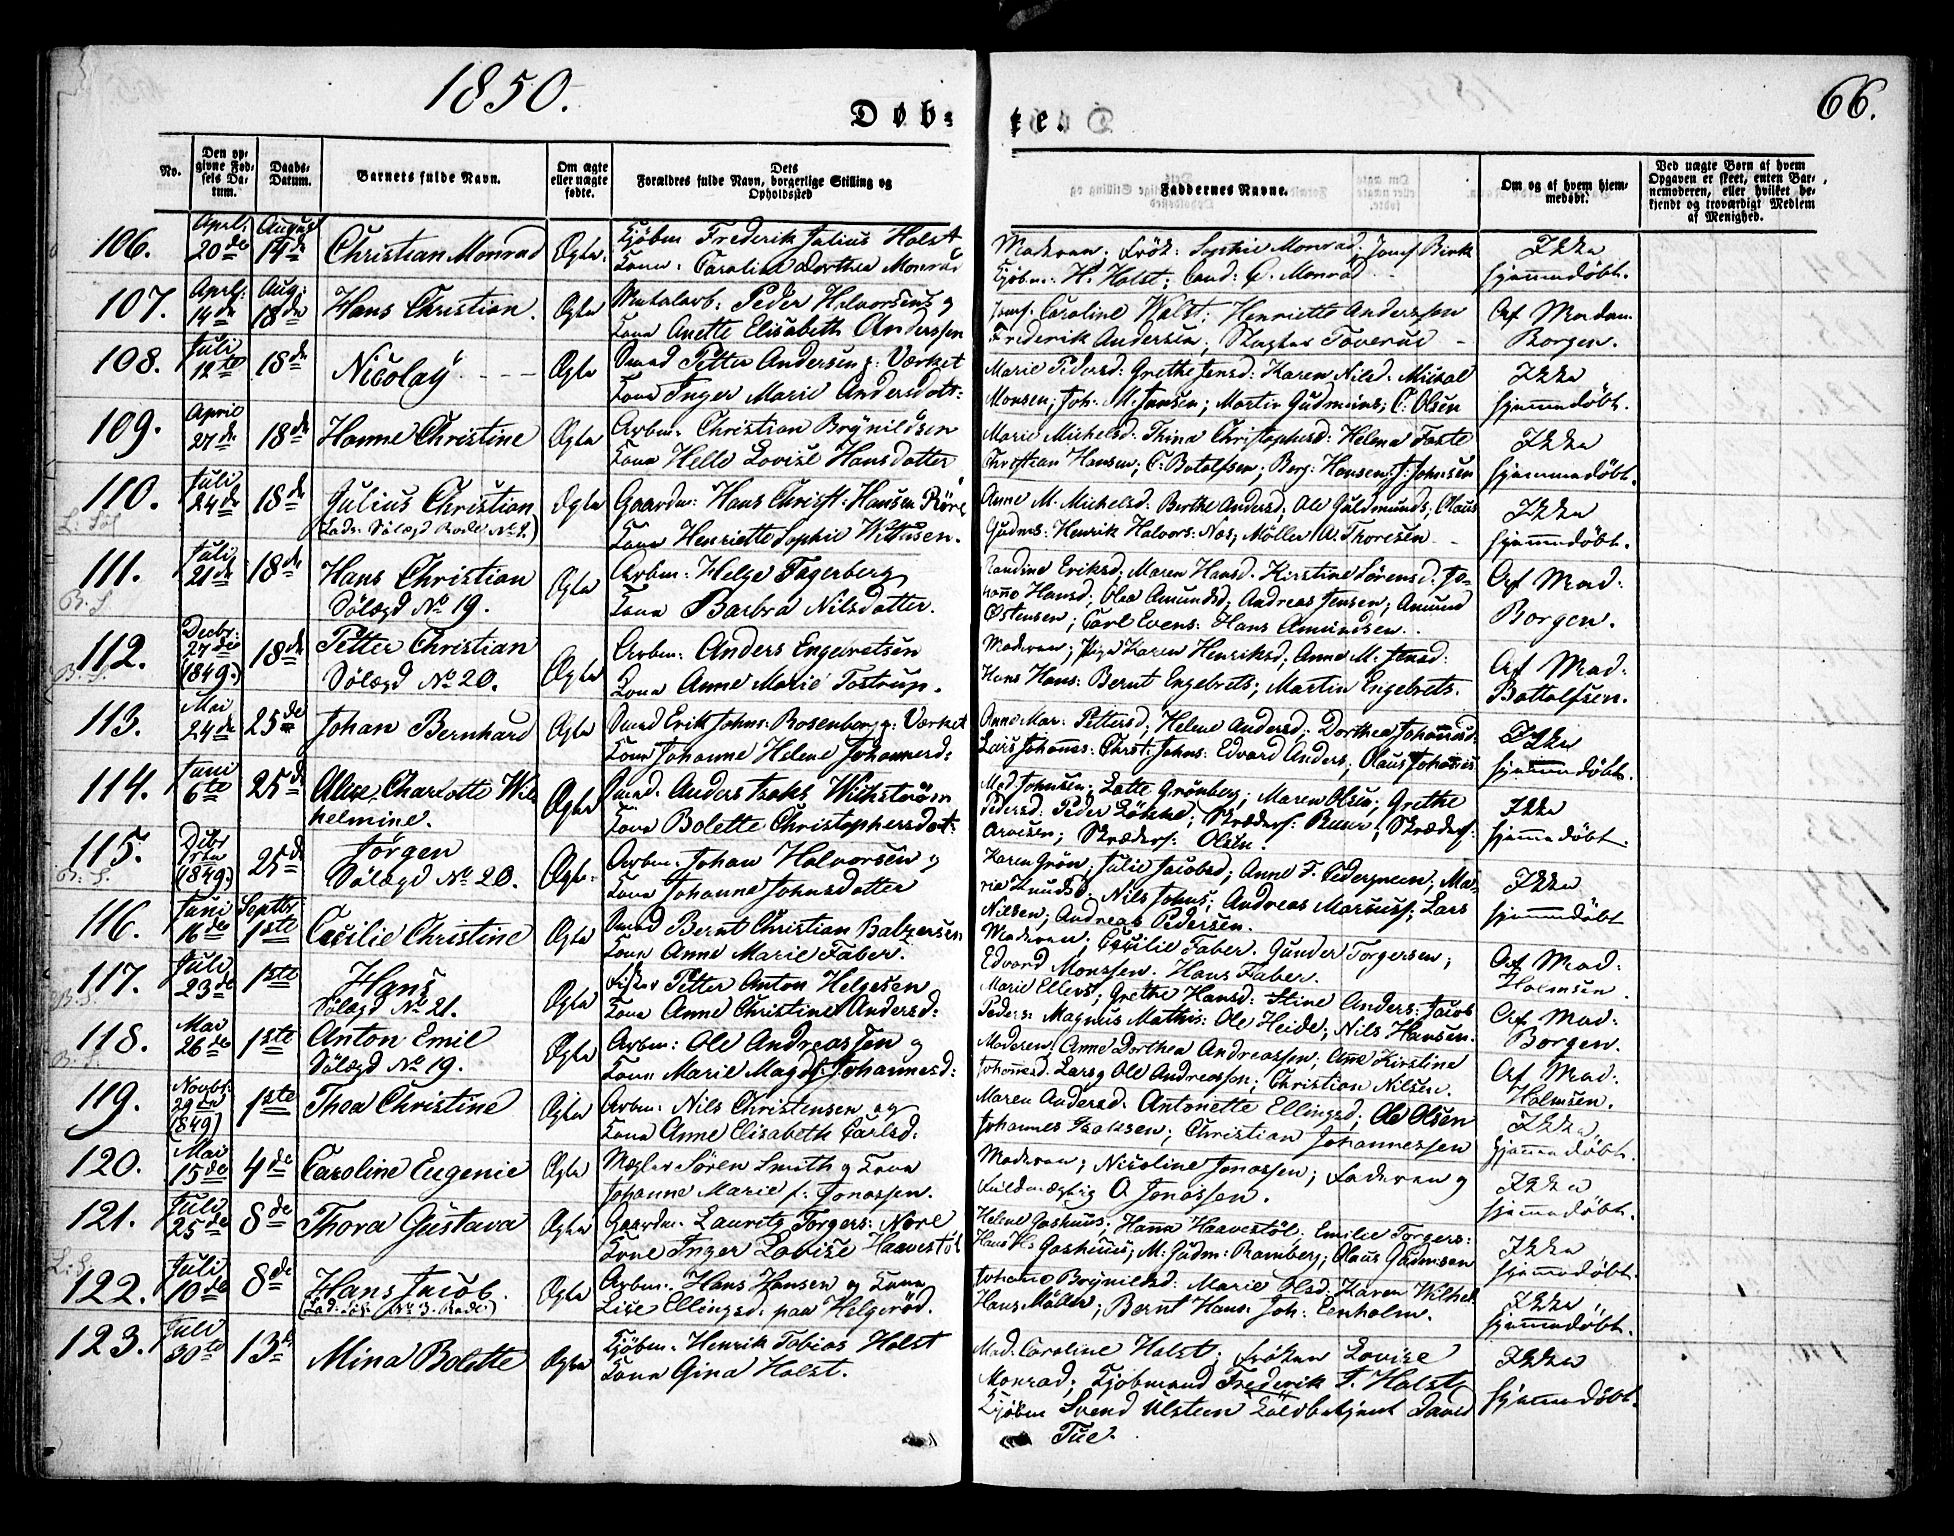 1850.
66.
Døb-
te.
No.
Den opgivne Fødsels Datum.
Daabs-Datum.
Barnets fulde Navn.
Om ægte eller uægte født.
Dets Forældres fulde Navn, borgerlige Stilling og Opholdssted
Faddernes Navne.
Om og af hvem hjemmedøbt.
Ved uægte Børn af hvem Opgaven er skeet, enten Barnemoderen, eller hvilket bekjendt og troværdigt Medlem af Menighed.
106. April: 20de August 14de Christian Monrad Ægte. Kjøbm Frederik Julius Holst
Kone: Caroline Dorthea Monrad
Madame; Frök: Sophie Monrad; Jomf Birk
Kjöbm: H. Holst; Cand: C. Monrad
Ikke hjemmedøbt.
107. April: 14de Aug: 18de Hans Christian. Ægte Peder Halvorsens og
Kone Anette Elisabeth Anderssen
Jomf: Caroline Holst; Henriette Anderssen
Frederik Andersen;
Af Madam Borgen.
108. Juli 12te 18de Nicolaÿ Ægte Smed Petter Andersen p: Værket
Kone Inger Marie Andersdatt:
Marie Pedersd: Grethe Jensd: Karen Nilsd: Mickal
Monsen; Joh: M. Jansen; Martin Gudmuns; C: Olsen
Ikke hjemmedøbt.
109. April 27de 18de Hanne Christine Ægte Arbm: Christian Brÿnildsen
Kone Helle Lovise Hansdatter
Marie Michelsd: Thina Christophersd: Helena Foxte
Christian Hansen; C: Botolfsen; Berg: Hansen; J: Johnsen
Ikke hjemmedøbt.
110. Juli 24de 18de Julius Christian
L: Söl (Lads: Sölægd Rode No 2.)
Ægte Gaardm: Hans Christ: Hansen Röre
Kone Henriette Sophie Wittusen.
Anne M. Michelsd: Berthe Andersd. Ole Guldmunds; Olaus
Gudms: Henrik Halvors: Nes; Möller A. Thoresen
Ikke hjemmedøbt.
111. Juli 21de 18de Hans Christian
B. S. Sölægd No 19.
Ægte Arbm: Helge Fagerberg
Kone Barbra Nilsdatter.
Randine Eriksd; Maren Hansd. Kirstine Sörensd. Jo-
hane Hansd; Olaa Amundsd; Andreas Jensen; Amund
Östensen; Carl Evens: Hans Amundsen.
Af Mad: Borgen.
112. Decbr: 27de (1849.) 18de Petter Christian
B. S. Sölægd No 20.
Ægte Arbm: Anders Engebretsen
Kone Anne Marie Tostrup.
Moderen; Pige Karen Henriksd; Anne M: Jensd:
Hans Hans: Bernt Engebrets; Martin Engebrets.
Af Mad: Bottolfsen.
113. Mai 24de 25de Johan Bernhard Ægte Smed Erik Johns: Rosenberg p: Værket
Kone Johanne Helene Johannesd:
Anne Mar: Pettersd; Helene Andersd; Dorthea Johannisd:
Lars Johannes: Christ: Johns: Edvard Anders; Olaus Johannis
Ikke hjemmedøbt.
114. Juni 6te 25de Aline Charlotte Wil-
helmine.
Ægte Smed. Anders Isaks Wickström
Kone Bolette Christophersdat:
Mad Johnsen; Lotte Grönberg; Maren Olsen; Grethe
Pedersd: Peder Lökke; Skrædersf: Skrædersf:
Arvesen; Skrædersf: Olsen.
Ikke hjemmedøbt.
115. Debr (1849.) 25de Jörgen
B. S. Sölægd No 20.
Ægte. Arbm: Johan Halvorsen og
Kone Johanne Johnsdatter
Karen Grön; Julie Jacobsd; Anne F. Pedersen; Ma-
rie Knudsd: Nils Johns; Andreas Marcusf; Lars
Nilsen; Andreas Pedersen.
Ikke hjemmedøbt
116. Juni 16de Septbr 1ste Cecilie Christine Ægte Smed Bernt Christian Balzersen
Kone Anne Marie Faber.
Moderen; Cecilie Faber. Gunder Torgersen;
Edvard Monssen. Hans Faber.
Af Mad: Holmsen
117. Juli 23de 1ste Hans
B. S. Sölægd No 21.
Ægte Fisker Petter Anton Helgesen
Kone Anne Christine Andersd:
Marie Ellevs; Grethe Hansd: Stine Anders: Jacob
Peders: Magnus Mathis: Ole Heide; Nils Hansen.
Af Mad: Borgen.
118. Mai 26de 1ste Anton Emil
B. S. Sölægd No 19.
Ægte Arbm: Ole Andreassen og
Kone Marie Magd: Johannesd:
Moderen; Anne Dorthea Andreassen, Anne Kirstine
Johannesd. Lars og Ole Andreassen; Christian Nilsen.
Af Mad: Holmsen.
119. Novbr: 29de (1849) 1ste Thea Christine Ægte Arbm: Nils Christensen og
Kone Anne Elisabeth Carlsd:
Maren Andersd. Antonette Ellingsd; Ole Olsen
Johannes Isaksen; Christian Johannessen
Ikke hjemmedøbt.
120. Mai 15de 4de Caroline Eugenie Ægte Mægler Sören Smith og Kone
Johanne Marie f: Jonassen.
Moderen; Nicoline Jonassen; Faderen og
Fuldmægtig O Jonassen.
Ikke hjemmedøbt.
121. Juli 25de 8de Thora Gustava Ægte Gaardm. Lauritz Torgers: Nore
Kone Inger Lovise Haavestöl
Helene Gashuus; Hanna Haavestöl; Emilie Torgers:
Hans Hs Gashuus; M: Gudm: Ramberg; Olaus Gudmsen
Ikke hjemmedøbt.
122. Juli 10de 8de Hans Jacob.
L: S (Lad: Söl: No 3. Rode)
Ægte Arbm: Hans Hansen og Kone
Lise Ellingsd: paa Helgeröd.
Johane Brÿnildsd: Marie Olsd: Karen Wilhel
Hans Möller; Bernt Hans: Joh: Eenholm.
Ikke hjemmedøbt.
123. Juli 30te 13de Mina Bolette Ægte Kjöbm. Henrik Tobias Holst
Kone Gina Holst.
Mad. Caroline Holst; Fröken Lovise
Monrad; Kjöbmand Frederik J. Holst
Kjöbm Svend Ulsteen Toldbetjent David
Tue.
Ikke hjemmedøbt.